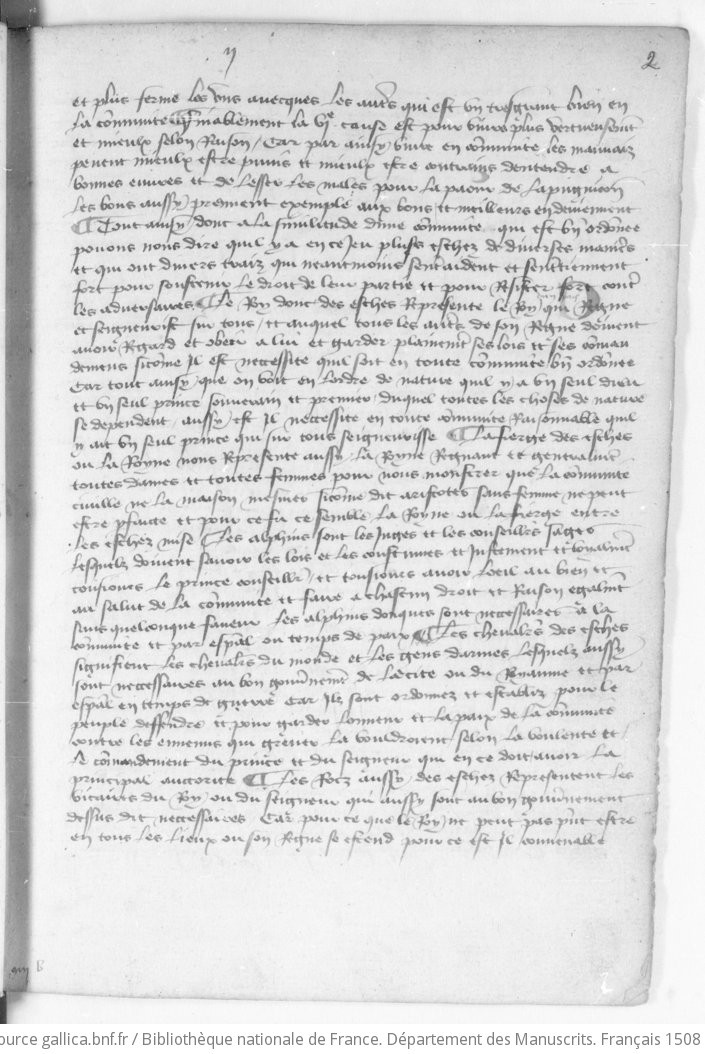 y
2
et plus ferme les vns auecques les autrs qui est vng tresgrant bien en
la cõmunite finablement la vie cause est pour viure plus vertueusemt
et mieulx selon Raison / Car par ainsy viure en cõmunite les mauuaiz
peuent mieulx estre punis et mieulx estre contrains dentendre a
bonnes euures et de lesser les males pour la paour de la pugnicion
les bons aussy prennent exemple aux bons et meilleurs en deuiennent
Tout ainsy donc a la similitude dune cõmunite qui est bn ordõnee
pouons nous dire quil y a en ce jeu plusrs eschez de diuerses manieres
et qui ont diuers traiz qui neantmoins sentraident et sentretiennent
fort pour soustenir le droit de leur partie et pour Resister fort contr
les aduersaires Le Roy donc des eschez Represente le Roy qui Regne
et seigneurist sur tous / et auquel tous les autrs de son Regne doiuent
auoir Regard et obeir a lui et garder plainemt ses lois et ses cõman
demens sicõme Jl est necessite quil soit en toute cõmunite bn ordõnee
Car tout ainsy que on voit en lordre de nature quil y a vn seul dieu
et vn seul prince souuerain et premier / duquel toutes les choses de nature
se dependent / aussy est Jl necessite en toute cõmunite Raisonnable quil
y ait vn seul prince qui sur tous seigneurisse La fierge des eschez
ou la Royne nous Represente aussy la Royne Regnant et generalmt
toutes dames et toutes femmes pour nous monstrer que la cõmunite
ciuille ne la maison mesmes sicõme dit aristotes sans femme ne peut
estre pfaicte et pour ce fu ce semble la Royne ou la fierge entre
les eschez mise Les alphins sont les juges et les conseillrs sages
lesquelz doiuent sauoir les lois et les coustumes et justement et loyaumt
tousiours le prince conseillr / et tousiours auoir loeil au bien et
au salut de la cõmunite et faire a chascun droit et Raison egalmt
sans quelconque faueur les alphins doncques sont necessaires a la
cõmunite et par espãl ou temps de paix Les cheualrs des eschez
signifient les cheualrs du monde et les gens darmes lesquelz aussy
sont necessaires au bon gouunemt de la cite ou du Royaume et par
espãl en temps de guerre Car Jlz sont ordonnez et establiz pour le
peuple deffendre et pour garder lonneur et la paix de la cõmunite
contre les ennemis qui greuer la vouldroient selon la voulente et
le cõmandement du prince et du seigneur qui en ce doit auoir la
principal auctorite Les Rocz aussy des eschez Representent les
vicaires du Roy / ou du seigneur qui aussy sont au bon gouunement
dessus dit necessaires Car pour ce que le Roy ne peut pas pñt estre
en tous les lieux ou son Regne se estend pour ce est Jl conuenable
source gallica.bnf.fr / Bibliothèque nationale de France. Département des Manuscrits. Français 1508